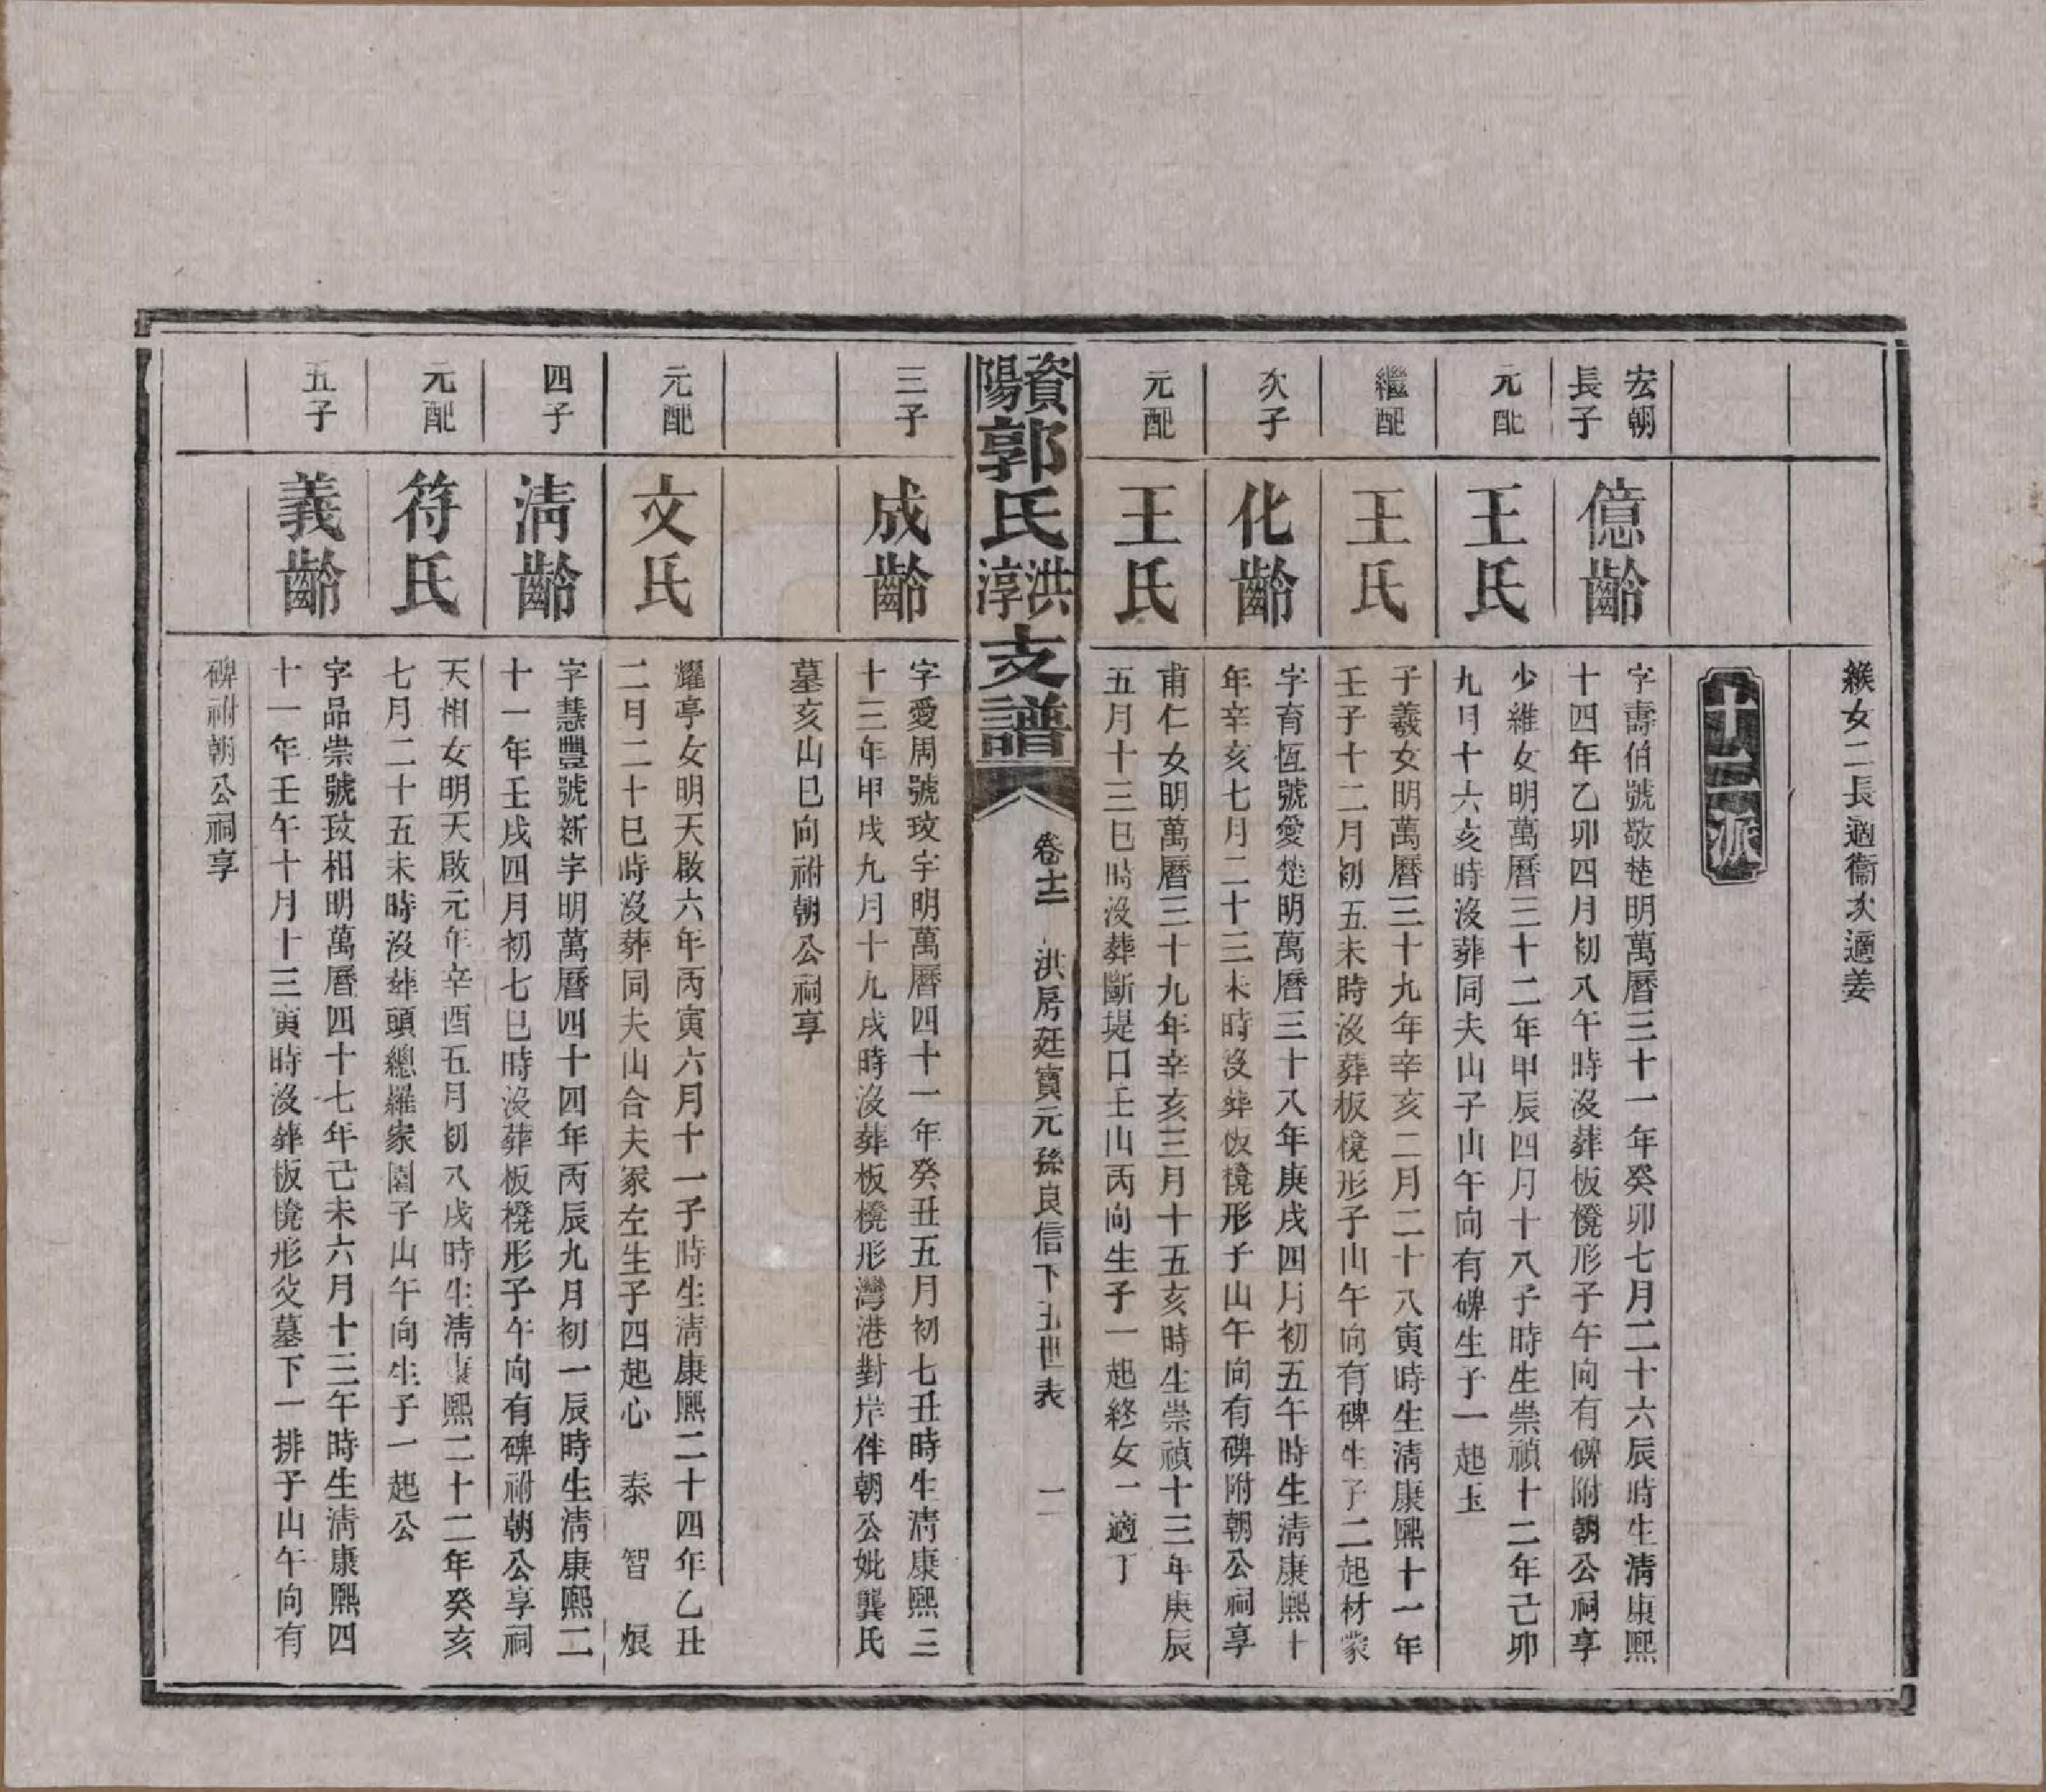 緱女二長適衞次適姜
十二派
宏朝
長子
億齡
字壽伯號敬楚明萬曆三十一年癸卯七月二十六辰時生淸康熙
十四年乙卯四月初八午時沒葬板櫈形子午向有碑附朝公祠享
元配
王氏
少維女明萬曆三十二年甲辰四月十八子時生崇禎十二年己卯
九月十六亥時沒葬同夫山子山午向有碑生子一起玉
繼配
王氏
子義女明萬曆三十九年辛亥二月二十八寅時生淸康熙十一年
壬子十二月初五未時沒葬板櫈形子山午向有碑生子二起材蒙
次子
化齡
字育恆號愛楚明萬曆三十八年庚戌四月初五午時生淸康熙十
年辛亥七月二十三未時沒葬板櫈形子山午向有碑附朝公祠享
元配
王氏
甫仁女明萬曆三十九年辛亥三月十五亥時生崇禎十三年庚辰
五月十三巳時沒葬斷堤口壬山丙向生子一起終女一適丁
資陽郭氏洪淳支譜
卷十二
洪房廷寶元孫良信下五世表
二
三子
成齡
字愛周號玟宇明萬曆四十一年癸丑五月初七丑時生淸康熙三
十三年甲戌九月十九戌時沒葬板櫈形灣港對岸伴朝公妣龔氏
墓亥山巳向祔朝公祠享
元配
文氏
耀亭女明天啟六年丙寅六月十一子時生淸康熙二十四年乙丑
二月二十巳時沒葬同夫山合夫冢左生子四起心 泰 智 烺
四子
淸齡
字慧豐號新宇明萬曆四十四年丙辰九月初一辰時生淸康熙二
十一年壬戌四月初七巳時沒葬板櫈形子午向有碑祔朝公享祠
元配
符氏
天相女明天啟元年辛酉五月初八戌時生淸康熙二十二年癸亥
七月二十五未時沒葬頭總羅家園子山午向生子一起公
五子
義齡
字品崇號玟相明萬曆四十七年己未六月十三午時生淸康熙四
十一年壬午十月十三寅時沒葬板櫈形父墓下一排子山午向有
碑祔朝公祠享